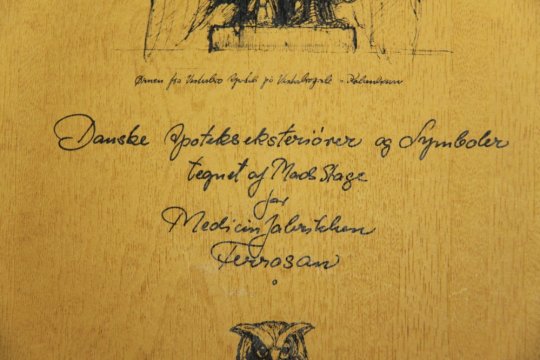 Ørnen fra Vesterbro Apotek på Vesterbrogade - København
Danske Apoteksexteriörer og Symboler
tegnet af Mads Stage
for
Medicinfabrikken
Ferrosan